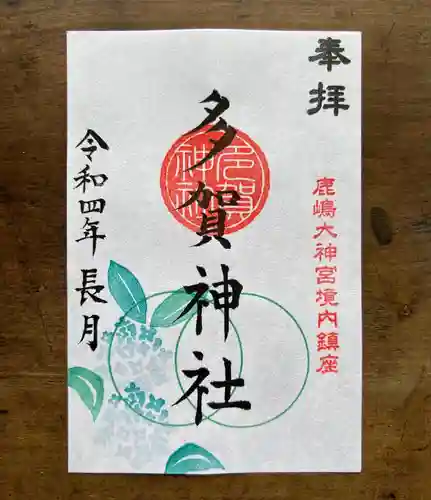 奉拝
鹿嶋大神宮境内鎮座
多賀神社
多賀神社
令和四年長月